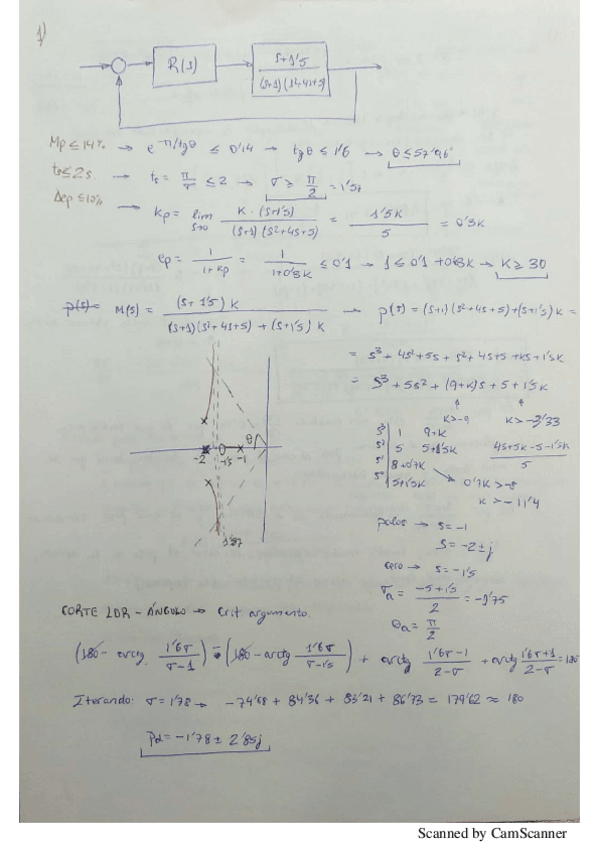 1)
R(s) s+1'5 / (s+1)(s²+4s+5)
Mp ≤ 14% → e^(-π/tgθ) ≤ 0'14 → tgθ ≤ 1'6 → θ ≤ 57'96°
ts ≤ 2s. → ts = π/σ ≤ 2 → σ ≥ π/2 = 1'57
Δep ≤ 10% → Kp = lim s→0 K·(s+1'5) / (s+1)(s²+4s+5) = 1'5K / 5 = 0'3K
ep = 1 / 1+Kp = 1 / 1+0'3K ≤ 0'1 → 1 ≤ 0'1 + 0'03K → K ≥ 30
p(s)= M(s) = (s+1'5)K / (s+1)(s²+4s+5) + (s+1'5)K → p(s) = (s+1)(s²+4s+5)+(s+1'5)K =
= s³ + 4s² + 5s + s² + 4s + 5 + Ks + 1'5K
= s³ + 5s² + (9+K)s + 5 + 1'5K
K>-9 K>-3'33
s³ 1 9+K
s² 5 5+1'5K 45+5K-5-1'5K / 5
s¹ 8+0'7K
s⁰ 5+1'5K 0'7K > -8
K > -11'4
θ
-2 -1'5 -1
polos → s = -1
s = -2 ± j
cero → s = -1'5
σa = -5+1'5 / 2 = -1'75
θa = π/2
CORTE LDR - ÁNGULO → Crit argumento.
(180 - arctg 1'6σ / σ-1) - (180 - arctg 1'6σ / σ-1'5) + arctg 1'6σ-1 / 2-σ + arctg 1'6σ+1 / 2-σ = 180
Iterando: σ = 1'78 → -74'68 + 84'36 + 83'21 + 86'73 = 179'62 ≈ 180
Pd = -1'78 ± 2'85j
Scanned by CamScanner